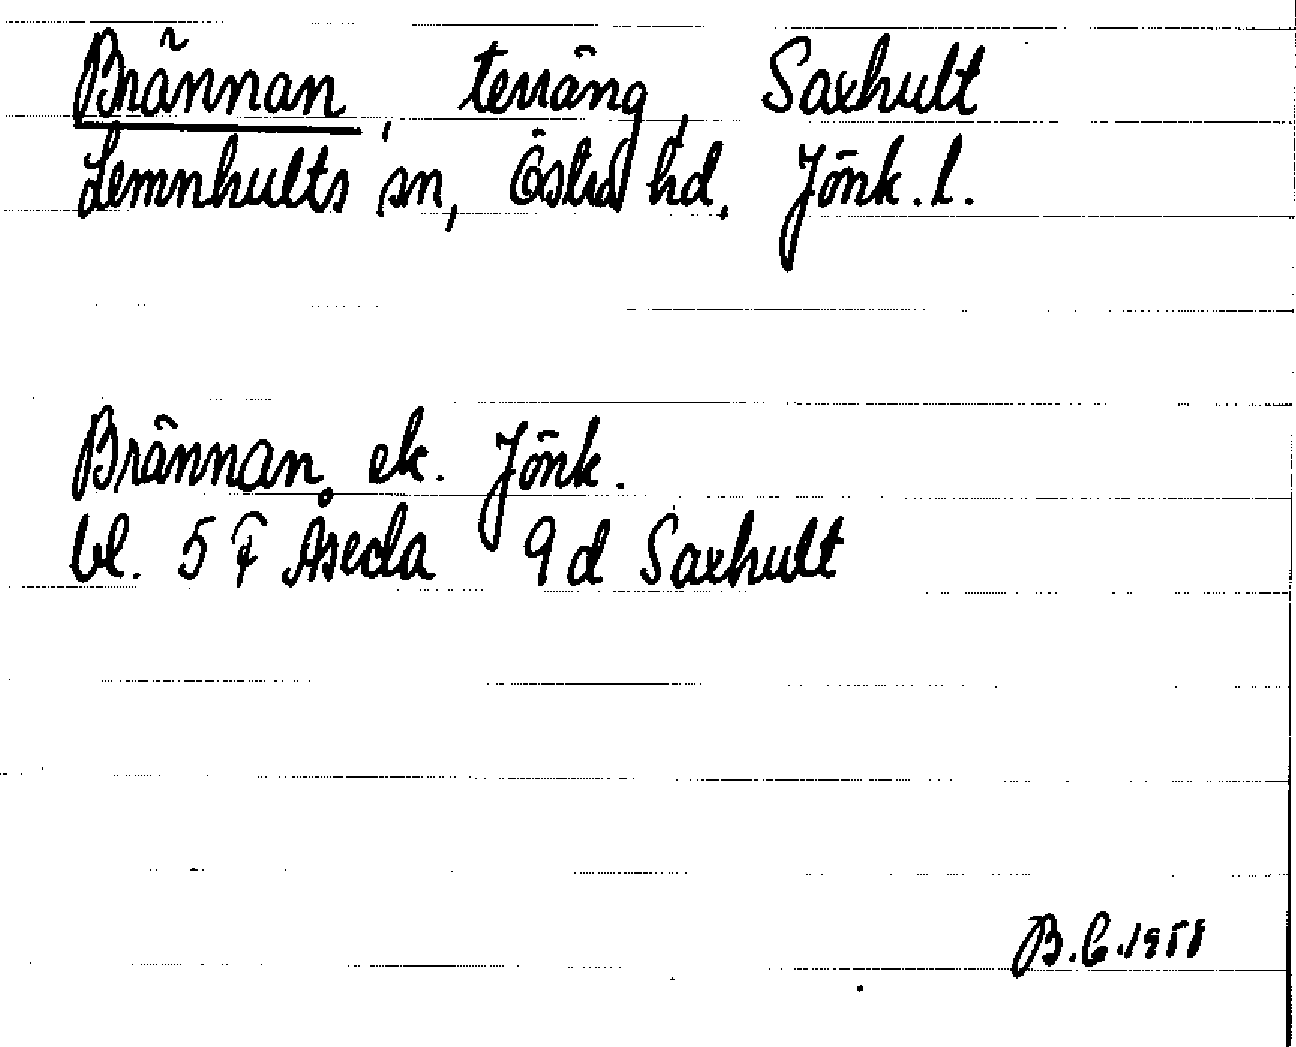 Brännan, terräng, Saxhult
Lemnhults sn, Östra hd, Jönk. l.
Brännan ek. Jönk.
bl. 5 F Åseda 9 d Saxhult
B.C. 1958